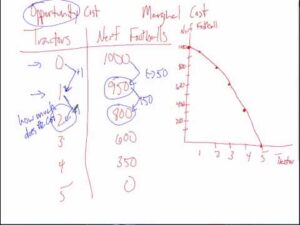 Opportunity Cost
Marginal Cost
Tractors
Nerf Footballs
0 1000
+1
-50
1 950
150
how much
does the cost
2 800
+1
3 600
4 350
5 0
Nerf Football
1000
800
600
400
200
1 2 3 4 5
Tractor